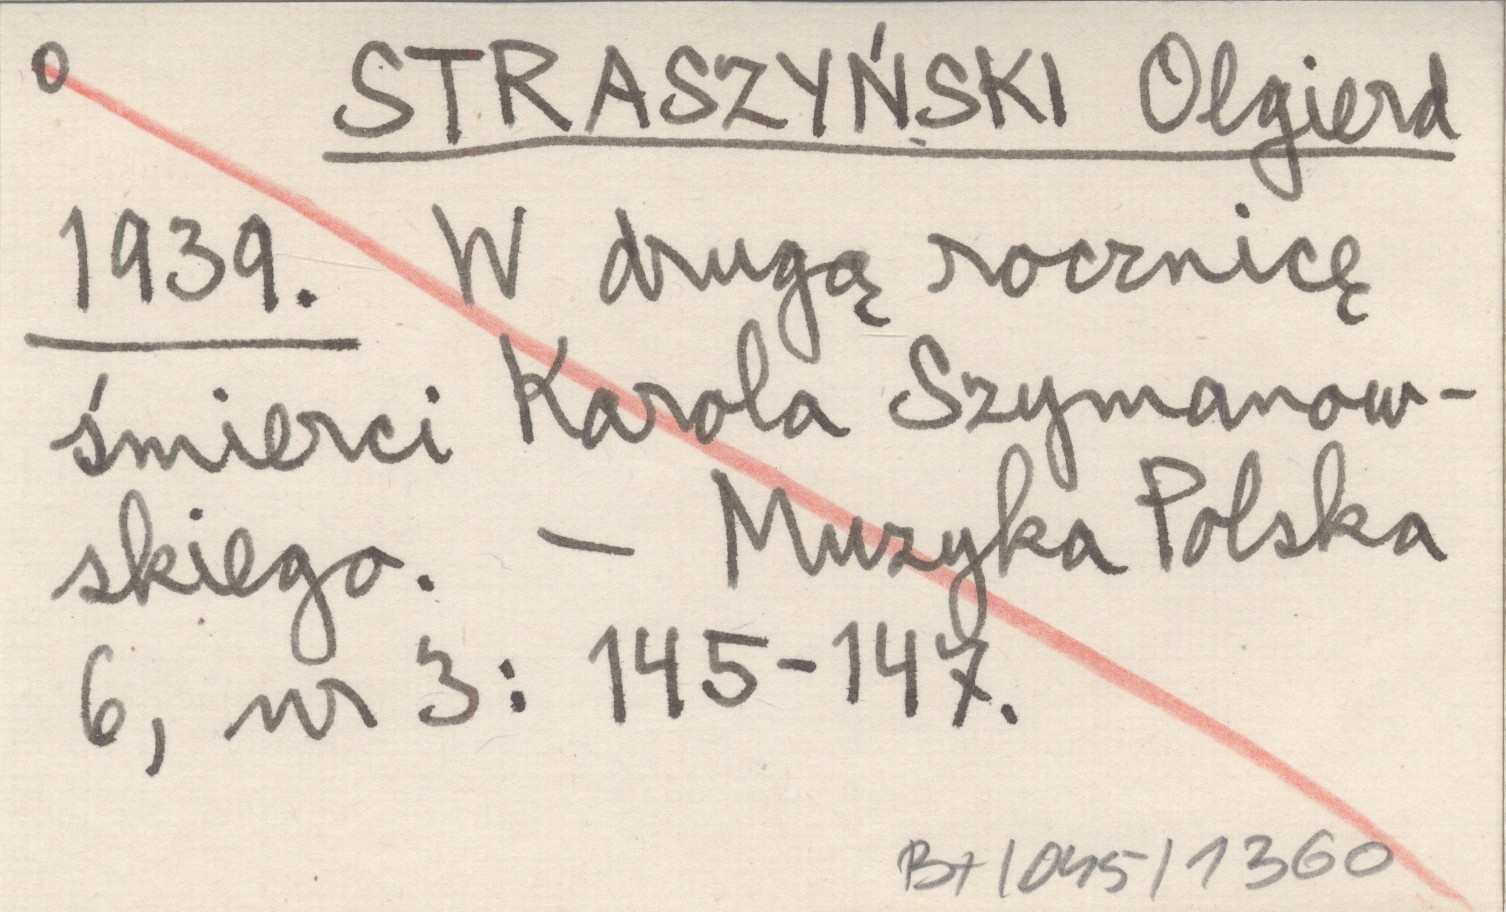 0 STRASZYŃSKI Olgierd
1939. W drugą rocznicę
śmierci Karola Szymanow-
skiego. — Muzyka Polska
6, nr 3: 145-147.
B7/045/1360